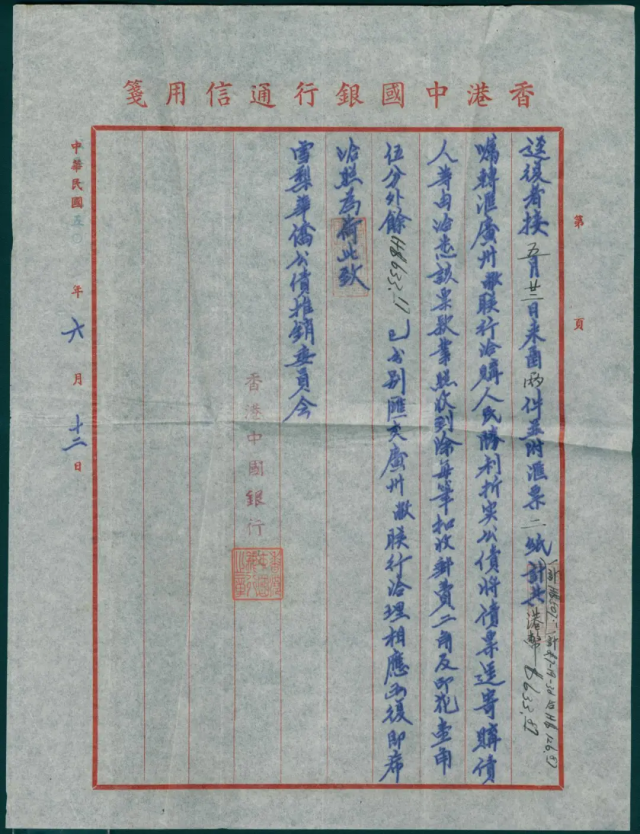 香港中國銀行通信用箋
第 頁
逕復者接五月廿三日來函兩件並附匯票二紙計共港幣$633.87
囑轉滙廣州敝聯行洽購人民勝利折實公債將債票逕寄購債
人等由洽悉該票款業照收到除每筆扣收郵費二角及印花壹角
伍分外餘HK$633.17已分别匯交廣州敝聯行洽理相應函復即希
洽照為荷此致
雪梨華僑公債推銷委員会
香港中國銀行
中華民國 年六月十二日